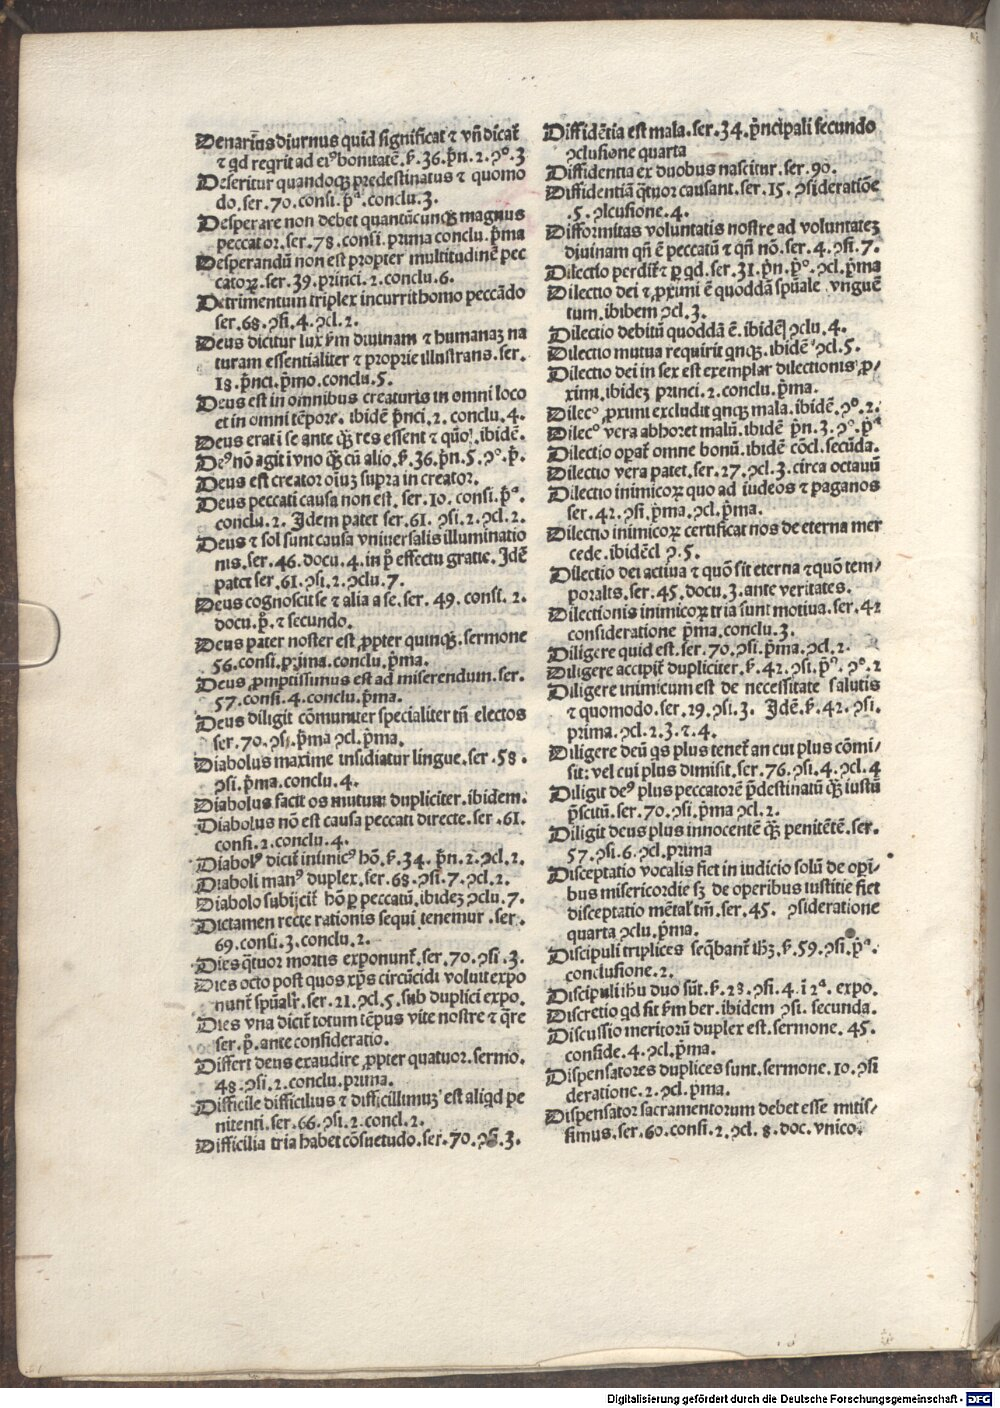 Denariꝰ diurnus quid significat ⁊ vñ dicat̃
⁊ qd reqrit ad eiꝰ bonitatē. ẜ. 36. p̃n. 2. ꝯᵒ. 3
Deseritur quandoqꝫ predestinatus ⁊ quomo
do. ser. 70. consi. p̃ᵃ. conclu. 3.
Desperare non debet quantūcunqꝫ magnus
peccator. ser. 78. consi. prima conclu. p̃ma
Desperandū non est propter multitudinē pec
catoꝝ. ser. 39. princi. 2. conclu. 6.
Detrimentum triplex incurrit homo peccādo
ser. 68. ꝯsi. 4. ꝯcl. 2.
Deus dicitur lux ẜm diuinam ⁊ humanaꝫ na
turam essentialiter ⁊ proprie illustrans. ser.
18. p̃nci. p̃mo. conclu. 5.
Deus est in omnibus creaturis in omni loco
et in omni tēpore. ibidē p̃nci. 2. conclu. 4.
Deus erat ī se ante qꝫ̃ res essent ⁊ quō. ibidē.
Deꝰ nō agit ī vno qꝫ̃ cū alio. ẜ. 36. p̃n. 5. ꝯᵒ. p̃.
Deus est creator oīuꝫ supra in creator.
Deus peccati causa non est. ser. 10. consi. p̃ᵃ.
conclu. 2. Idem patet ser. 61. ꝯsi. 2. ꝯcl. 2.
Deus ⁊ sol sunt causa vniuersalis illuminatio
nis. ser. 46. docu. 4. in p̃ effectu gratie. Idē
patet ser. 61. ꝯsi. 2. ꝯclu. 7.
Deus cognoscit se ⁊ alia a se. ser. 49. consi. 2.
docu. p̃. ⁊ secundo.
Deus pater noster est ꝓpter quinqꝫ. sermone
56. consi. prima. conclu. p̃ma.
Deus ꝓmptissimus est ad miserendum. ser.
57. consi. 4. conclu. p̃ma.
Deus diligit cōmuniter specialiter tñ electos
ser. 70. ꝯsi. p̃ma ꝯcl. p̃ma.
Diabolus maxime insidiatur lingue. ser. 58.
ꝯsi. p̃ma. conclu. 4.
Diabolus facit os mutum dupliciter. ibidem.
Diabolus nō est causa peccati directe. ser. 61.
consi. 2. conclu. 4.
Diabolꝰ dicit̃ inimicꝰ hōs. ẜ. 34. p̃n. 2. ꝯcl. 2.
Diaboli manꝰ duplex. ser. 68. ꝯsi. 7. ꝯcl. 2.
Diabolo subijcit̃ hō ꝑ peccatū. ibideꝫ ꝯclu. 7.
Dictamen recte rationis sequi tenemur. ser.
69. consi. 3. conclu. 2.
Dies q̃tuor mortis exponunt̃. ser. 70. ꝯsi. 3.
Dies octo post quos xp̃s circūcidi voluit expo
nunt̃ spūalit̃. ser. 21. ꝯcl. 5. sub duplici expo.
Dies vna dicit̃ totum tēpus vite nostre ⁊ q̃re
ser. p̃. ante consideratio.
Differt deus exaudire ꝓpter quatuor. sermo.
48. ꝯsi. 2. conclu. prima.
Difficile difficilius ⁊ difficillimuꝫ est aliqd pe
nitenti. ser. 66. ꝯsi. 2. concl. 2.
Difficilia tria habet cōsuetudo. ser. 70. ꝯsi. 3.
Diffidētia est mala. ser. 34. p̃ncipali secundo
ꝯclusione quarta
Diffidentia ex duobus nascitur. ser. 90.
Diffidentiā q̃tuor causant. ser. 15. ꝯsideratiōe
.5. ꝯlcusione. 4.
Difformitas voluntatis nostre ad voluntateꝫ
diuinam qñ ē peccatū ⁊ qñ nō. ser. 4. ꝯsi. 7.
Dilectio perdit̃ ⁊ ꝑ qd. ser. 31. p̃n. p̃ᵒ. ꝯcl. p̃ma
Dilectio dei ⁊ ꝓximi ē quoddā spūale vnguē
tum. ibibem ꝯcl. 3.
Dilectio debitū quoddā ē. ibidē ꝯclu. 4.
Dilectio mutua requirit qnqꝫ. ibidē ꝯcl. 5.
Dilectio dei in sex est exemplar dilectionis ꝓ⸗
ximi. ibideꝫ princi. 2. conclu. p̃ma.
Dilecᵒ ꝓximi excludit qnqꝫ mala. ibidē. ꝯᵒ. 2.
Dilecᵒ vera abhoret malū. ibidē p̃n. 3. ꝯᵒ. p̃ᵃ
Dilectio opat̃ omne bonū. ibidē cōcl. secūda.
Dilectio vera patet. ser. 27. ꝯcl. 3. circa octauū
Dilectio inimicoꝝ quo ad iudeos ⁊ paganos
ser. 42. ꝯsi. p̃ma. ꝯcl. p̃ma.
Dilectio inimicoꝝ certificat nos de eterna mer
cede. ibidēcl ꝯ. 5.
Dilectio dei actiua ⁊ quō sit eterna ⁊ quō tem⸗
poralis. ser. 45. docu. 3. ante veritates.
Dilectionis inimicoꝝ tria sunt motiua. ser. 42
consideratione p̃ma. conclu. 3.
Diligere quid est. ser. 70. ꝯsi. p̃ma. ꝯcl. 2.
Diligere accipit̃ dupliciter. ẜ. 42. ꝯsi. p̃ᵃ. ꝯᵒ. 2
Diligere inimicum est de necessitate salutis
⁊ quomodo. ser. 29. ꝯsi. 3. Idē. ẜ. 42. ꝯsi.
prima. ꝯcl. 2. 3. ⁊. 4.
Diligere deū qs plus tenet̃ an cui plus cōmi⸗
sit: vel cui plus dimisit. ser. 76. ꝯsi. 4. ꝯcl. 4
Diligit deꝰ plus peccatorē p̃destinatū qꝫ̃ iustū
p̃scitū. ser. 70. ꝯsi. p̃ma ꝯcl. 2.
Diligit deus plus innocentē qꝫ̃ penitētē. ser.
57. ꝯsi. 6. ꝯcl. prima
Disceptatio vocalis fiet in iudicio solū de opi⸗
bus misericordie sꝫ de operibus iustitie fiet
disceptatio mētal̃ tm̃. ser. 45. ꝯsideratione
quarta ꝯclu. p̃ma.
Discipuli triplices seq̃bant̃ ihꝫ. ẜ. 59. ꝯsi. p̃ᵃ.
conclusione. 2.
Discipuli ihu duo sūt. ẜ. 28. ꝯsi. 4. ī 2ᵃ. expo.
Discretio qd sit ẜm ber. ibidem ꝯsi. secunda.
Discussio meritorū duplex est. sermone. 45.
conside. 4. ꝯcl. p̃ma.
Dispensatores duplices sunt. sermone. 10. ꝯsi
deratione. 2. ꝯcl. p̃ma.
Dispensator sacramentorum debet esse mitis⸗
simus. ser. 60. consi. 2. ꝯcl. 8. doc. vnico.
Digitalisierung gefördert durch die Deutsche Forschungsgemeinschaft - DFG